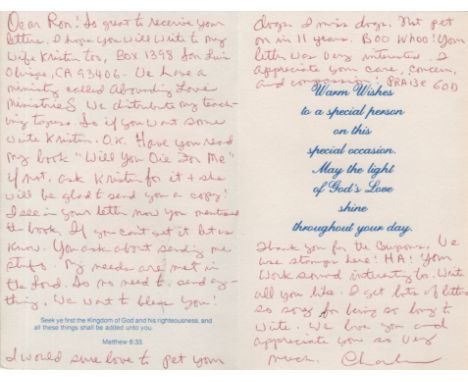 Dear Ron! So great to receive your
letter. I hope you will write to my
wife Kristin too, Box 1398 San Luis
Obispo, CA 93406. We have a
ministry called Abounding Love
Ministries. We distribute my teach-
ing tapes. So if you want some
write Kristin. O.K. Have you read
my book "Will You Die For Me"
if not, ask Kristin for it & she
will be glad to send you a copy!
I see in your letter now you mentioned
the book. If you can't get it let us
know. You ask about sending me
stuff. My needs are met in
the Lord. So no need to send any-
thing. We want to bless you!
Seek ye first the Kingdom of God and his righteousness, and
all these things shall be added unto you.
Matthew 6:33
I would sure love to pet your
dogs. I miss dogs. Not pet
on in 11 years. BOO WHOO! Your
letter was very interesting. I
appreciate your care, concern,
and compassion. PRAISE GOD
Warm Wishes
to a special person
on this
special occasion.
May the light
of God's Love
shine
throughout your day.
Thank you for the coupons. We
use stamps here! HA! Your
work sound interesting too. Write
all you like. I get lots of letters
so sorry for being so long to
write. We love you and
appreciate you so very
much. Charles